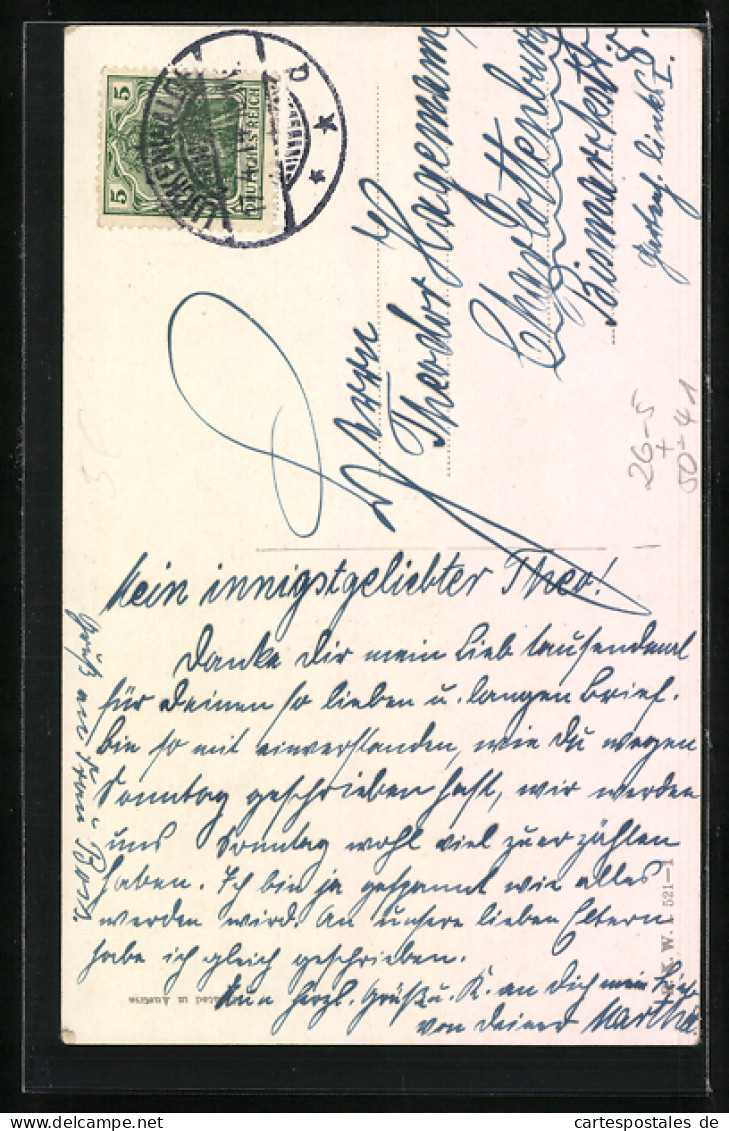 5
5
DEUTSCHES REICH
LUCKENWALDE
b
Herrn
Theodor Hagemann
Charlottenburg
Bismarckstr. 8.
Gartenh. links I.
26-5
+
50-41
Mein innigstgeliebter Theo!
Danke Dir mein Lieb tausendmal
für Deinen so lieben u. langen Brief.
bin so mit einverstanden, wie Du wegen
Sonntag geschrieben hast, wir werden
uns Sonntag wohl viel zu erzählen
haben. Ich bin ja gespannt wie alles
werden wird. An unsere lieben Eltern
habe ich gleich geschrieben.
Nun herzl. Grüße u. K. an Dich mein Lieb
von Deiner Martha
Gruß an Frau
Printed in Austria
K. W. I. 521-1
www.delcampe.net
cartespostales de